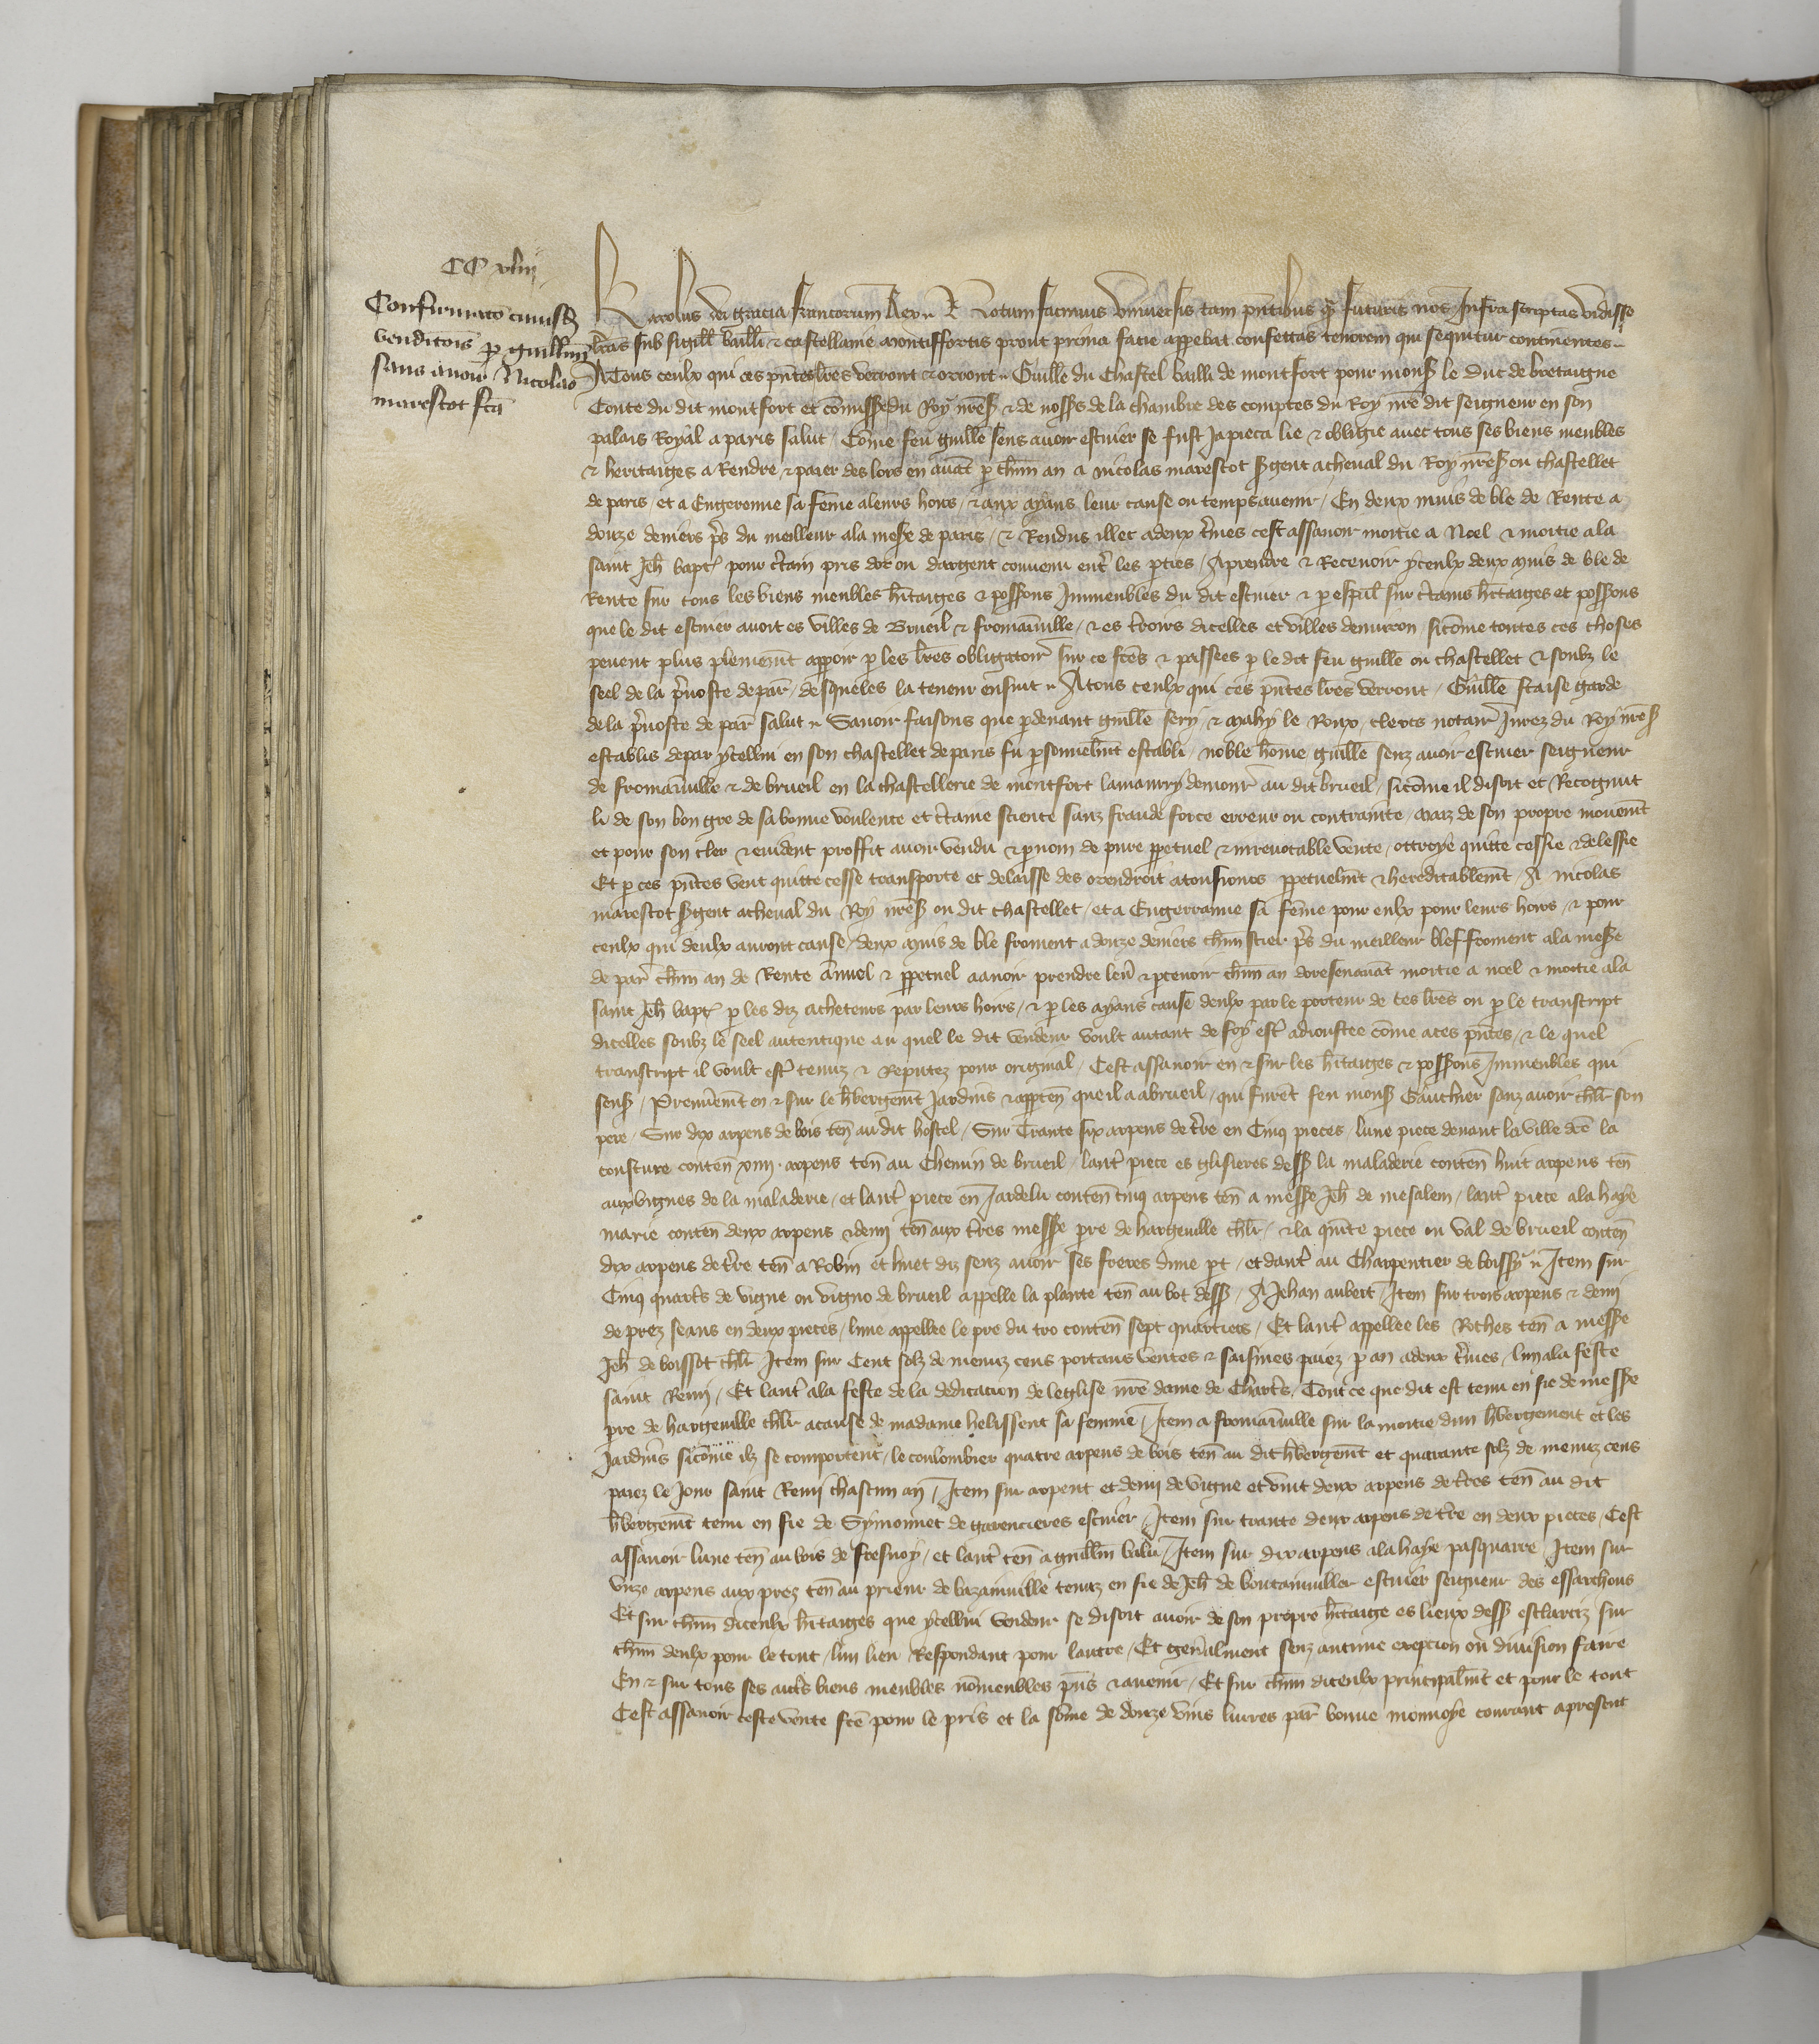 CC xliiij
Confirmatio cuiusd
venditois p guillm
sans avoir Nicolao
marescot fca
Karolus dei gracia francorum Rex Notum facimus universis tam pntibus q futuris nos Infrascriptas vidisse
lras sub sigill bailli & castellanie montiffortis prout prima facie apparebat confectas tenorem qui sequitur continentes
A Tous ceulx qui ces pntes lres verront & orront Guille du Chastel bailli de montfort pour mons le duc de bretaigne
Conte du dit montfort et comisse du Roy nres & de noss de la chambre des comptes du Roy nre dit seigneur en son
palais Royal a paris salut Come feu guille sens avoir escuier se fust Japieca lie & obligie avec tous ses biens meubles
& heritaiges a Rendre & paier des lors en avat p chun an a nicolas marescot sgent acheval du Roy nres ou chastellet
de paris et a Engerenne sa feme aleurs hoirs & aux ayans leur cause ou temps avenir En deux muis de ble de Rente a
douze deniers ps du meilleur ala mese de paris & Rendus illec adeux tmes cest assavoir moitie a Noel & moitie ala
saint Jeh bapt pour ctain pris dor ou dargent convenu entr les pties Aprendre & Recevoir yceulx deux muis de ble de
Rente sur tous les biens meubles hitaiges & possons Inmeubles du dit escuier & p espal sur ctains hitaiges et possons
que le dit escuier avoit es villes de Brueil & fromainville & es troirs dicelles et villes denviron sicome toutes ces choses
pevent plus plenement apoir p les lres obligatoir sur ce fces & passees p le dit feu guille ou chastellet & soubz le
seel de la pvoste de par desqueles la teneur ensuit A tous ceulx qui ces pntes lres verront Guille staise garde
de la pvoste de par salut Savoir faisons que pdevant guille sery & mahy le Roux clercs notair Jurez du Roy nres
establis depar ycellui en son chastellet de paris fu psonnelmt establi noble home guille senz avoir escuier seigneur
de fromainville & de brueil en la chastellerie de montfort lamaury demour au dit brueil sicome il disoit et Recognut
li de son bon gre de sa bonne voulente et ctaine science sanz fraude force erreur ou contrainte maiz de son propre movemt
et pour son cler & evident proffit avoir vendu & p nom de pure ppetuel & inrevocable vente ottroye quitte cesse & delessie
Et p ces pntes vent quitte cesse transporte et delaisse des orendroit atousiours ppetuelmt & hereditablemt A nicolas
marescot sgent acheval du Roy nres ou dit chastellet et a Engerranne sa feme pour eulx pour leurs hoirs & pour
ceulx qui deulx auront cause deux muis de ble froment a douze deniers chun stier ps du meilleur blef froment ala mese
de par chun an de Rente annuel & ppetuel a avoir prendre lev & pcevoir chun an doresenavat moitie a noel & moitie ala
saint Jeh bapt p les diz acheteurs par leurs hoirs & p les ayans cause deulx par le porteur de ces lres ou p le transcript
dicelles soubz le seel autentique au quel le dit vendeur voult autant de foy estr adioustee come aces pntes & le quel
transcript il voult estr tenuz & Reputez pour original Cest assavoir en & sur les hitaiges & possons Inmeubles qui
sens Premieremt en & sur le hbergemt Jardins & appten que il a abrueil qui furet feu mons Gauthier sanz avoir chlr son
pere Sur dix arpens de bois ten au dit hostel Sur Trante six arpens de tre en Cinq pieces lune piece devant la ville dce la
cousture conten xiiij arpens ten au Chemin de brueil lautr piece es glisieres dess la maladerie conten huit arpens ten
aux vignes de la maladerie et lautr piece en Jardelu conten cinq arpens ten a messe Jeh de mesalem lautr piece ala haye
marie conten deux arpens & demi ten aux tres messe pre de hargeville chlr & la quite piece ou val de brueil conten
dix arpens de tre ten a Robin et huet diz senz avoir ses freres dune pt et dautr au Charpentier de boissy Item sur
Cinq quarts de vigne ou vigno de brueil appelle la plante ten au bot dess A Jehan aubert Item sur trois arpens & demi
de prez seans en deux pieces lune appellee le pre du tro conten sept quartiers Et lautr appellee les Roches ten a messe
Jeh de boissot chlr Item sur Cent solz de menuz cens portans ventes & saisines paiez p an adeux tmes lun ala feste
saint Remi Et lautr ala feste de la dedicacion de leglise nre dame de Charts Tout ce que dit est tenu en fie de messe
pre de hargeville chlr acause de madame helissent sa femme Item a fromainville sur la moitie dun hbergement et les
Jardins sicome ilz se comportent le coulombier quatre arpens de bois ten au dit hbergemt et quarante solz de menuz cens
paiez le Jour saint Remi chascun an Item sur arpent et demi de vigne et vint deux arpens de tres ten au dit
hbergemt tenu en fie de Symonnet de garencieres escuier Item sur trante deux arpens de tre en deux pieces Cest
assavoir lune ten au bois de fresnoy et lautr ten a guillm balu Item sur dix arpens ala haye pasquarre Item sur
unze arpens aux prez ten au prieur de bazainville tenuz en fie de Jeh de boutainviller escuier seigneur des essarchous
Et sur chun diceulx hitaiges que ycellui vendeur se disoit avoir de son propre hitaige es lieux dess esclarciz sur
chun deulx pour le tout lun lieu Respondant pour lautre Et genralment senz aucune exepcion ou division faire
En & sur tous ses auts biens meubles nomeubles pns & avenir Et sur chun diceulx principalmt et pour le tout
Cest assavoir ceste vente fce pour le pris et la some de douze vins livres par bonne monnoye courant apresent